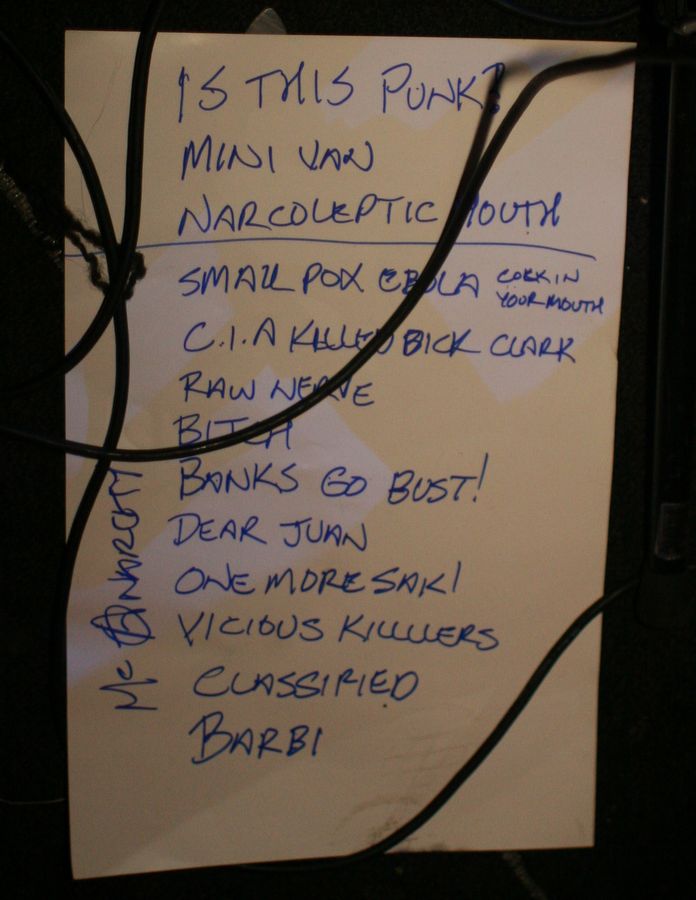 IS THIS PUNK?
MINI VAN
NARCOLEPTIC MOUTH
SMALL POX EBOLA COCK IN YOUR MOUTH
C.I.A KILLED DICK CLARK
RAW NERVE
BITCH
BANKS GO BUST!
DEAR JUAN
ONE MORE SAKI
VICIOUS KILLLLERS
CLASSIFIED
BARBI
Mc